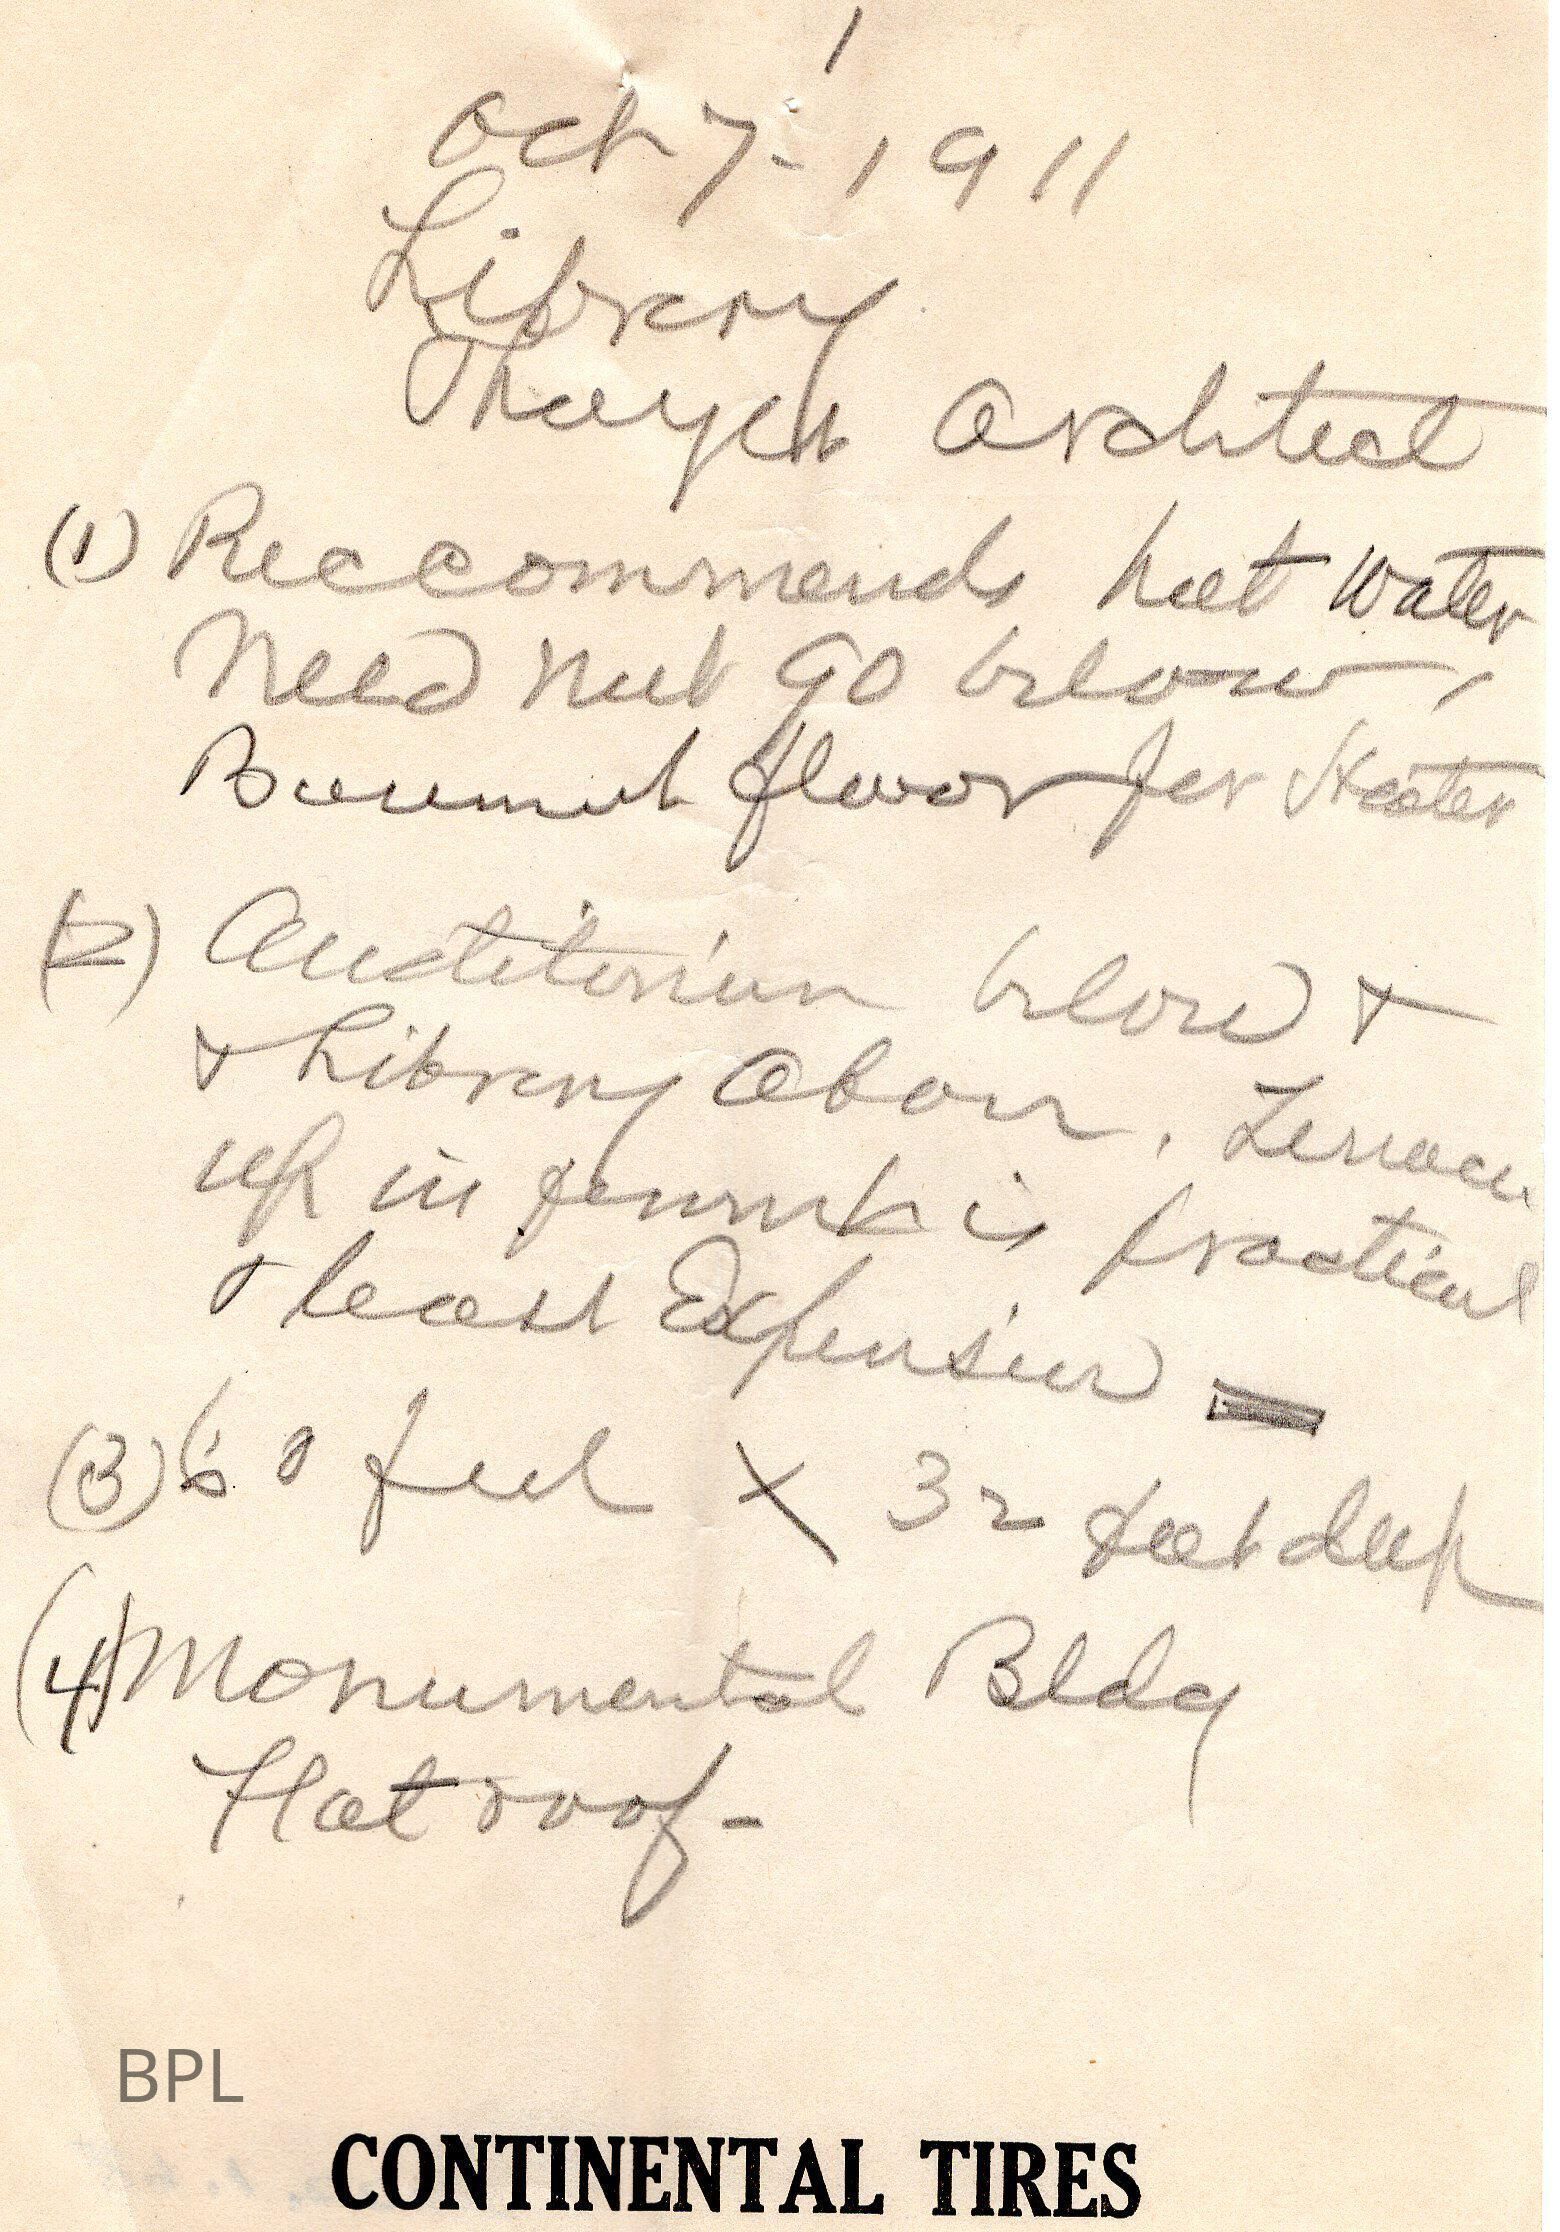 1
Oct 7 - 1911
Library
Thayer Architect
(1) Reccommends hot water
Need not go below
Basement floor for Heater
(2) Auditorium below &
& Library Above. Terrace
up in front is practical
& least Expensive —
(3) 60 feet X 32 feet deep
(4) Monumental Bldg
Flat roof -
BPL
CONTINENTAL TIRES